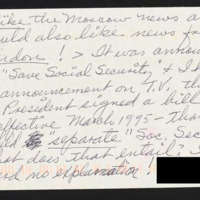 like the Moscow news a
uld also like news fr
ndon! > It was annou
"Save Social Security" & I
announcement on T.V., th
President signed a bill
effective March 1995 - tha
"separate" Soc. Sec
at does that entail?
rd no explanation!